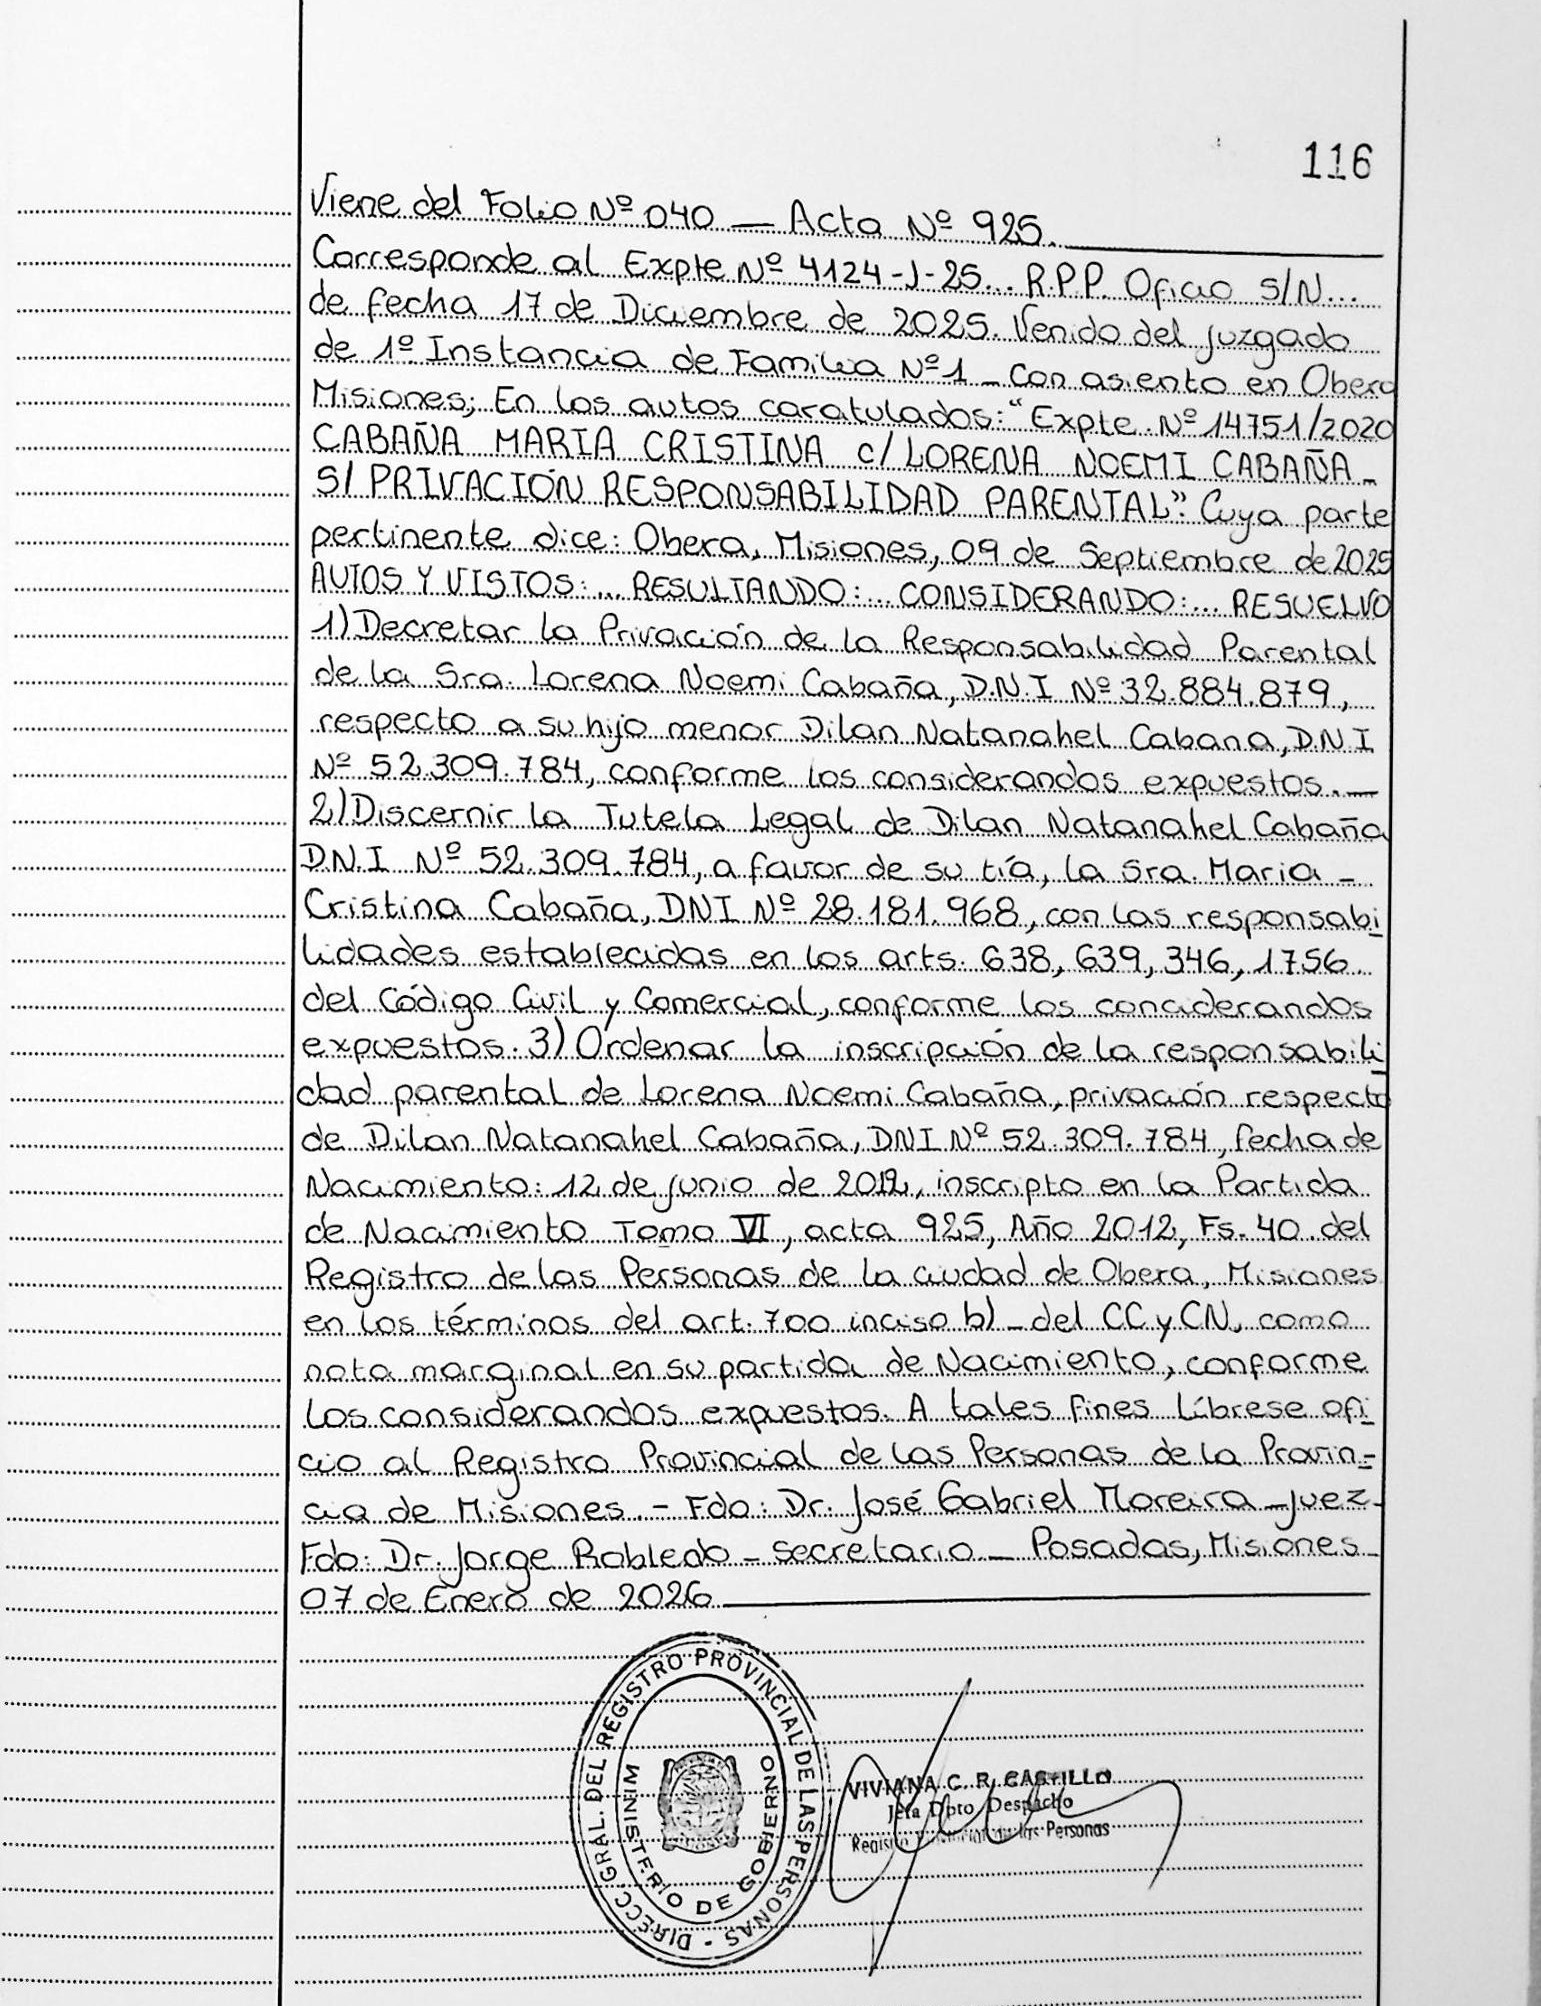 116
Viene del Folio Nº 040 — Acta Nº 925.
Corresponde al Expte Nº 4124-J-25... R.P.P. Oficio S/N...
de fecha 17 de Diciembre de 2025. Venido del Juzgado
de 1º Instancia de Familia Nº 1 - Con asiento en Obera
Misiones; En los autos caratulados: "Expte. Nº 14751/2020
CABAÑA MARIA CRISTINA c/ LORENA NOEMI CABAÑA -
S/ PRIVACIÓN RESPONSABILIDAD PARENTAL". Cuya parte
pertinente dice: Obera, Misiones, 09 de Septiembre de 2025
AUTOS Y VISTOS:... RESULTANDO:... CONSIDERANDO:... RESUELVO
1) Decretar la Privación de la Responsabilidad Parental
de la Sra. Lorena Noemi Cabaña, D.N.I Nº 32.884.879,
respecto a su hijo menor Dilan Natanahel Cabana, D.N.I
Nº 52.309.784, conforme los considerandos expuestos. —
2) Discernir la Tutela Legal de Dilan Natanahel Cabaña
D.N.I Nº 52.309.784, a favor de su tía, la Sra. Maria -
Cristina Cabaña, DNI Nº 28.181.968, con las responsabi
lidades establecidas en los arts. 638, 639, 346, 1756
del Código Civil y Comercial, conforme los conciderandos
expuestos. 3) Ordenar la inscripción de la responsabili
dad parental de Lorena Noemi Cabaña, privación respecto
de Dilan Natanahel Cabaña, DNI Nº 52.309.784, fecha de
Nacimiento: 12 de junio de 2012, inscripto en la Partida
de Nacimiento Tomo VI, acta 925, Año 2012, Fs. 40 del
Registro de las Personas de la ciudad de Obera, Misiones
en los términos del art. 700 inciso b) - del CC y CN, como
nota marginal en su partida de Nacimiento, conforme
los considerandos expuestos. A tales fines Líbrese ofi
cio al Registro Provincial de las Personas de la Provin-
cia de Misiones. - Fdo: Dr. José Gabriel Moreira - Juez -
Fdo: Dr. Jorge Robledo - secretario - Posadas, Misiones -
07 de Enero de 2026
DIRECC. GRAL. DEL REGISTRO PROVINCIAL DE LAS PERSONAS -
MINISTERIO DE GOBIERNO
VIVIANA C. R. CASTILLO
Jefa Dpto Despacho
Registro Provincial de las Personas